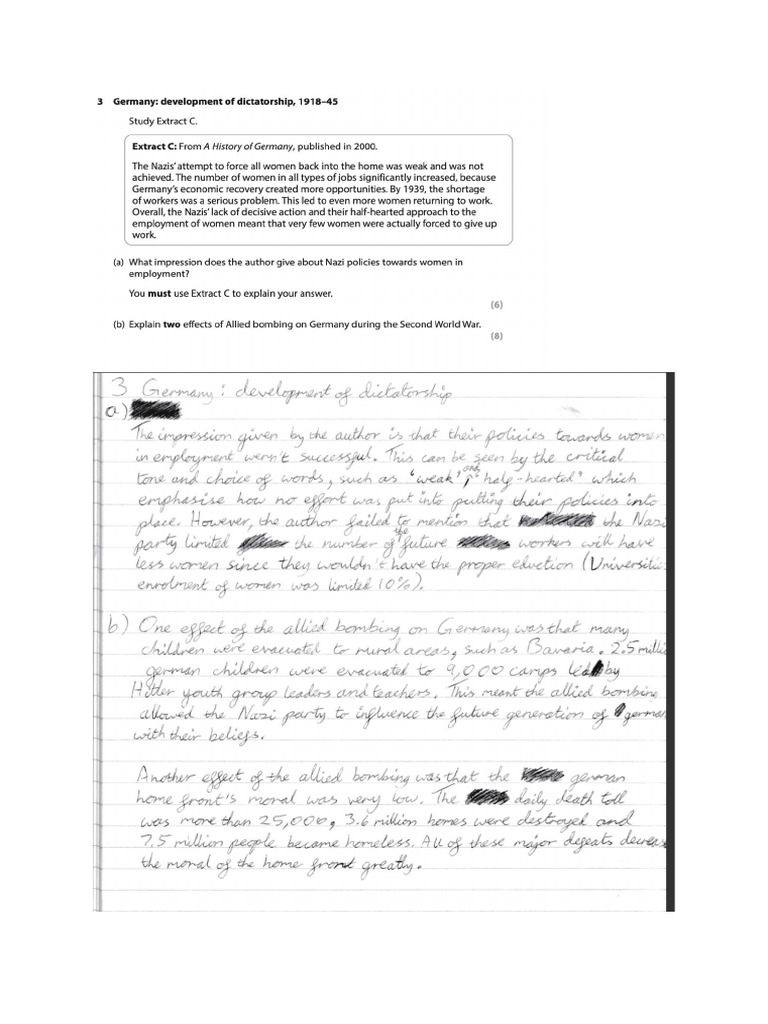 3 Germany: development of dictatorship, 1918–45
Study Extract C.
Extract C: From A History of Germany, published in 2000.
The Nazis' attempt to force all women back into the home was weak and was not
achieved. The number of women in all types of jobs significantly increased, because
Germany's economic recovery created more opportunities. By 1939, the shortage
of workers was a serious problem. This led to even more women returning to work.
Overall, the Nazis' lack of decisive action and their half-hearted approach to the
employment of women meant that very few women were actually forced to give up
work.
(a) What impression does the author give about Nazi policies towards women in
employment?
You must use Extract C to explain your answer.
(6)
(b) Explain two effects of Allied bombing on Germany during the Second World War.
(8)
3 Germany: development of dictatorship
a)
The impression given by the author is that their policies towards women
in employment wern't successful. This can be seen by the critical
tone and choice of words, such as 'weak' and 'half-hearted' which
emphasise how no effort was put into putting their policies into
place. However, the author failed to mention that the Nazi
party limited the number of the future workers will have
less women since they wouldn't have the proper eduction (Universities
enrolment of women was limited 10%).
b) One effect of the allied bombing on Germany was that many
children were evacuated to rural areas, such as Bavaria. 2.5 millio
german children were evacuated to 9,000 camps led by
Hitler youth group leaders and teachers. This meant the allied bombing
allowed the Nazi party to influence the future generation of german
with their beliefs.
Another effect of the allied bombing was that the german
home front's moral was very low. The daily death toll
was more than 25,000, 3.6 million homes were destroyed and
7.5 million people became homeless. All of these major defeats decreas
the moral of the home front greatly.